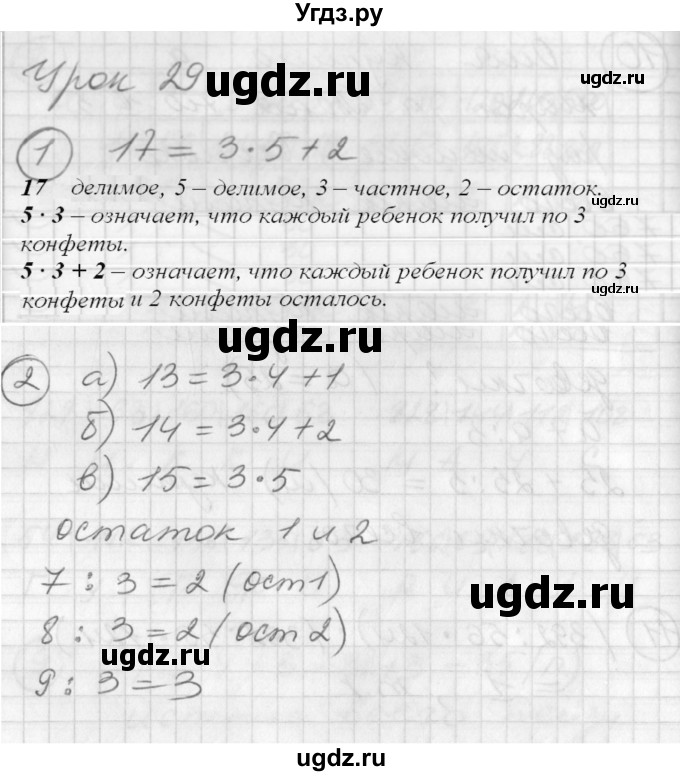 Угдз.ру
Урок 29 ugdz.ru
ugdz.ru
1 17 = 3·5+2
17 делимое, 5 – делимое, 3 – частное, 2 – остаток.
ugdz.ru
5 · 3 – означает, что каждый ребенок получил по 3
конфеты.
5 · 3 + 2 – означает, что каждый ребенок получил по 3
ugdz.ru
конфеты и 2 конфеты осталось.
ugdz.ru
2 а) 13 = 3·4+1
б) 14 = 3·4+2
в) 15 = 3·5
остаток 1 и 2
7 : 3 = 2 (ост 1)
ugdz.ru
8 : 3 = 2 (ост 2)
ugdz.ru
9 : 3 = 3
ugdz.ru